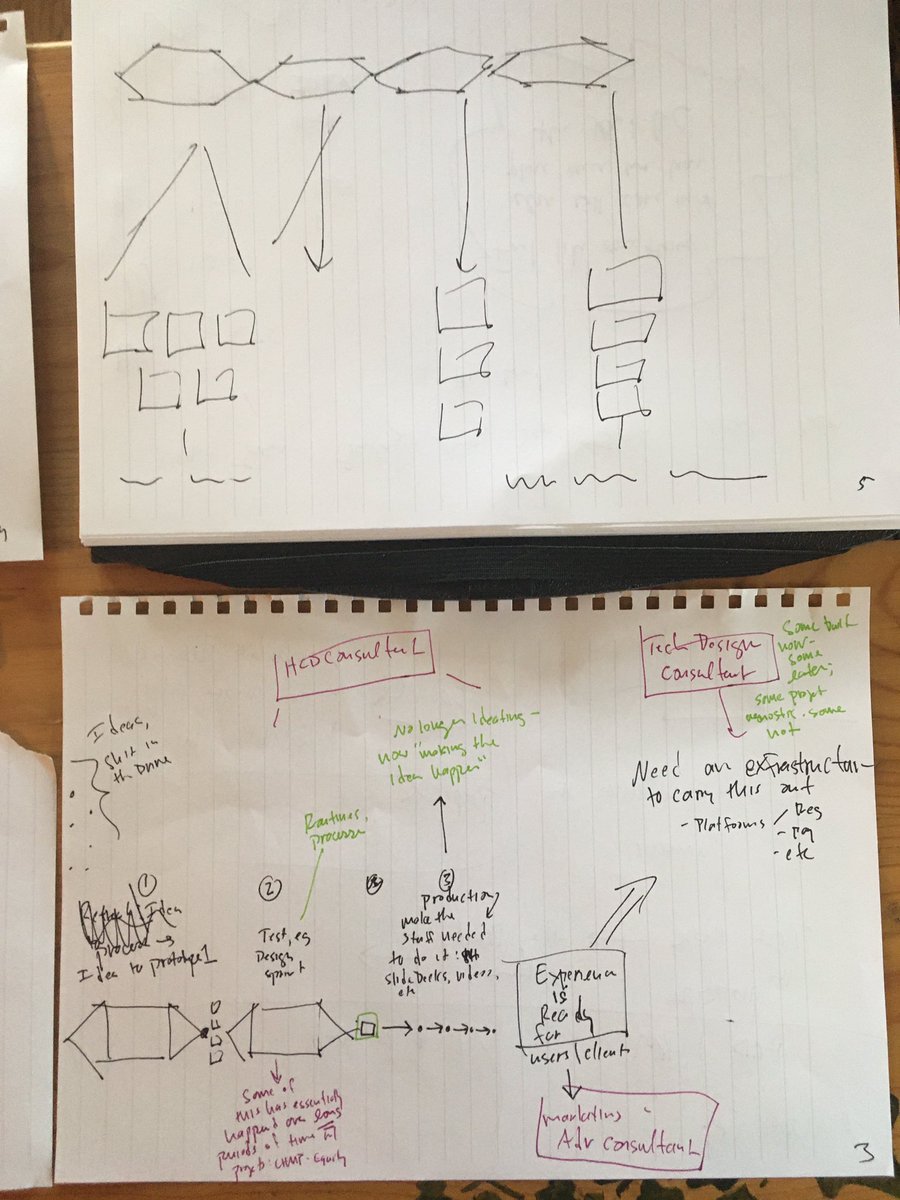 5
HCD Consultant
Tech Design
Consultant
Some built
now -
some
later;
some projet
agnostic. some
not
Ideas,
shit in
th Drive
No longer Ideating -
now "making the
Idea happen"
Need an
to carry this out
- Platforms / Reg
- etc
Routines,
processes
1
2
3
Idea
process →
Idea to prototype 1
Test, eg
Design
sprint
production,
make the
stuff needed
to do it:
slide Decks, videos,
etc
Experience
is
Ready
for
users/clients
Some of
this has essentially
happend over long
periods of time
projects:
marketing -
Adv consultant
3